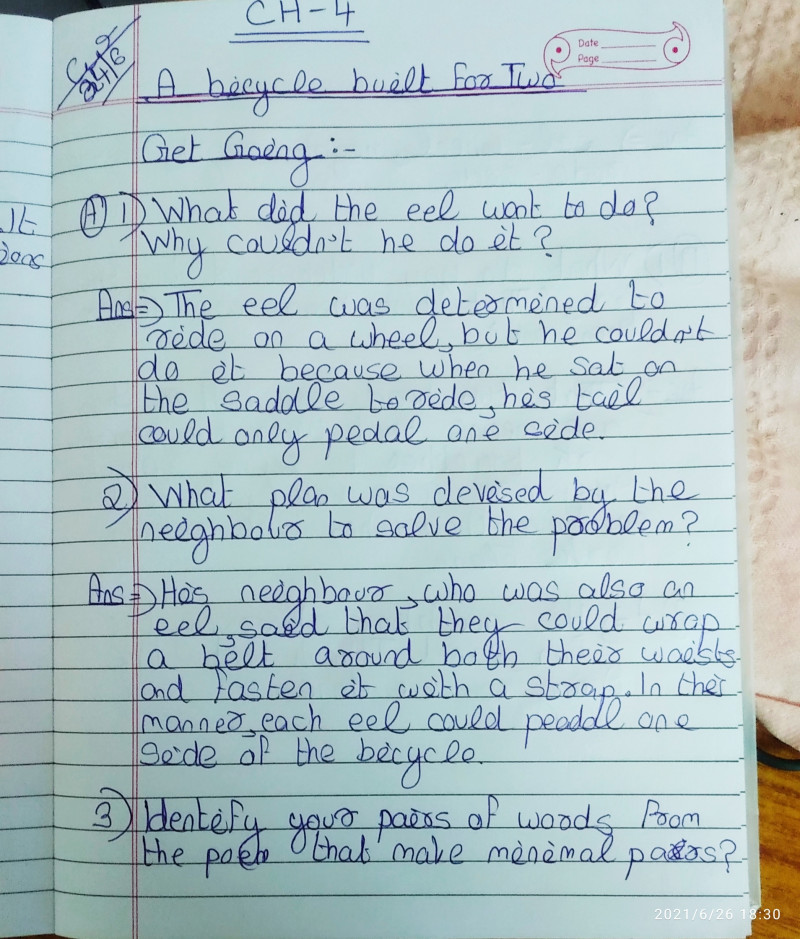 CH-4
C.W
24/6
Date
Page
A bicycle built For Two
Get Going :-
It
(A) 1) What did the eel want to do?
Why couldn't he do it?
Ans=) The eel was determined to
ride on a wheel, but he couldn't
do it because when he sat on
the saddle to ride, his tail
could only pedal one side.
2) What plan was devised by the
neighbour to solve the problem?
Ans=) His neighbour, who was also an
eel, said that they could wrap
a belt around both their waists
and fasten it with a strap. In this
manner, each eel could peadal one
side of the bicycle.
3) Identify your pairs of words from
the poem that make minimal pairs?
2021/6/26 18:30